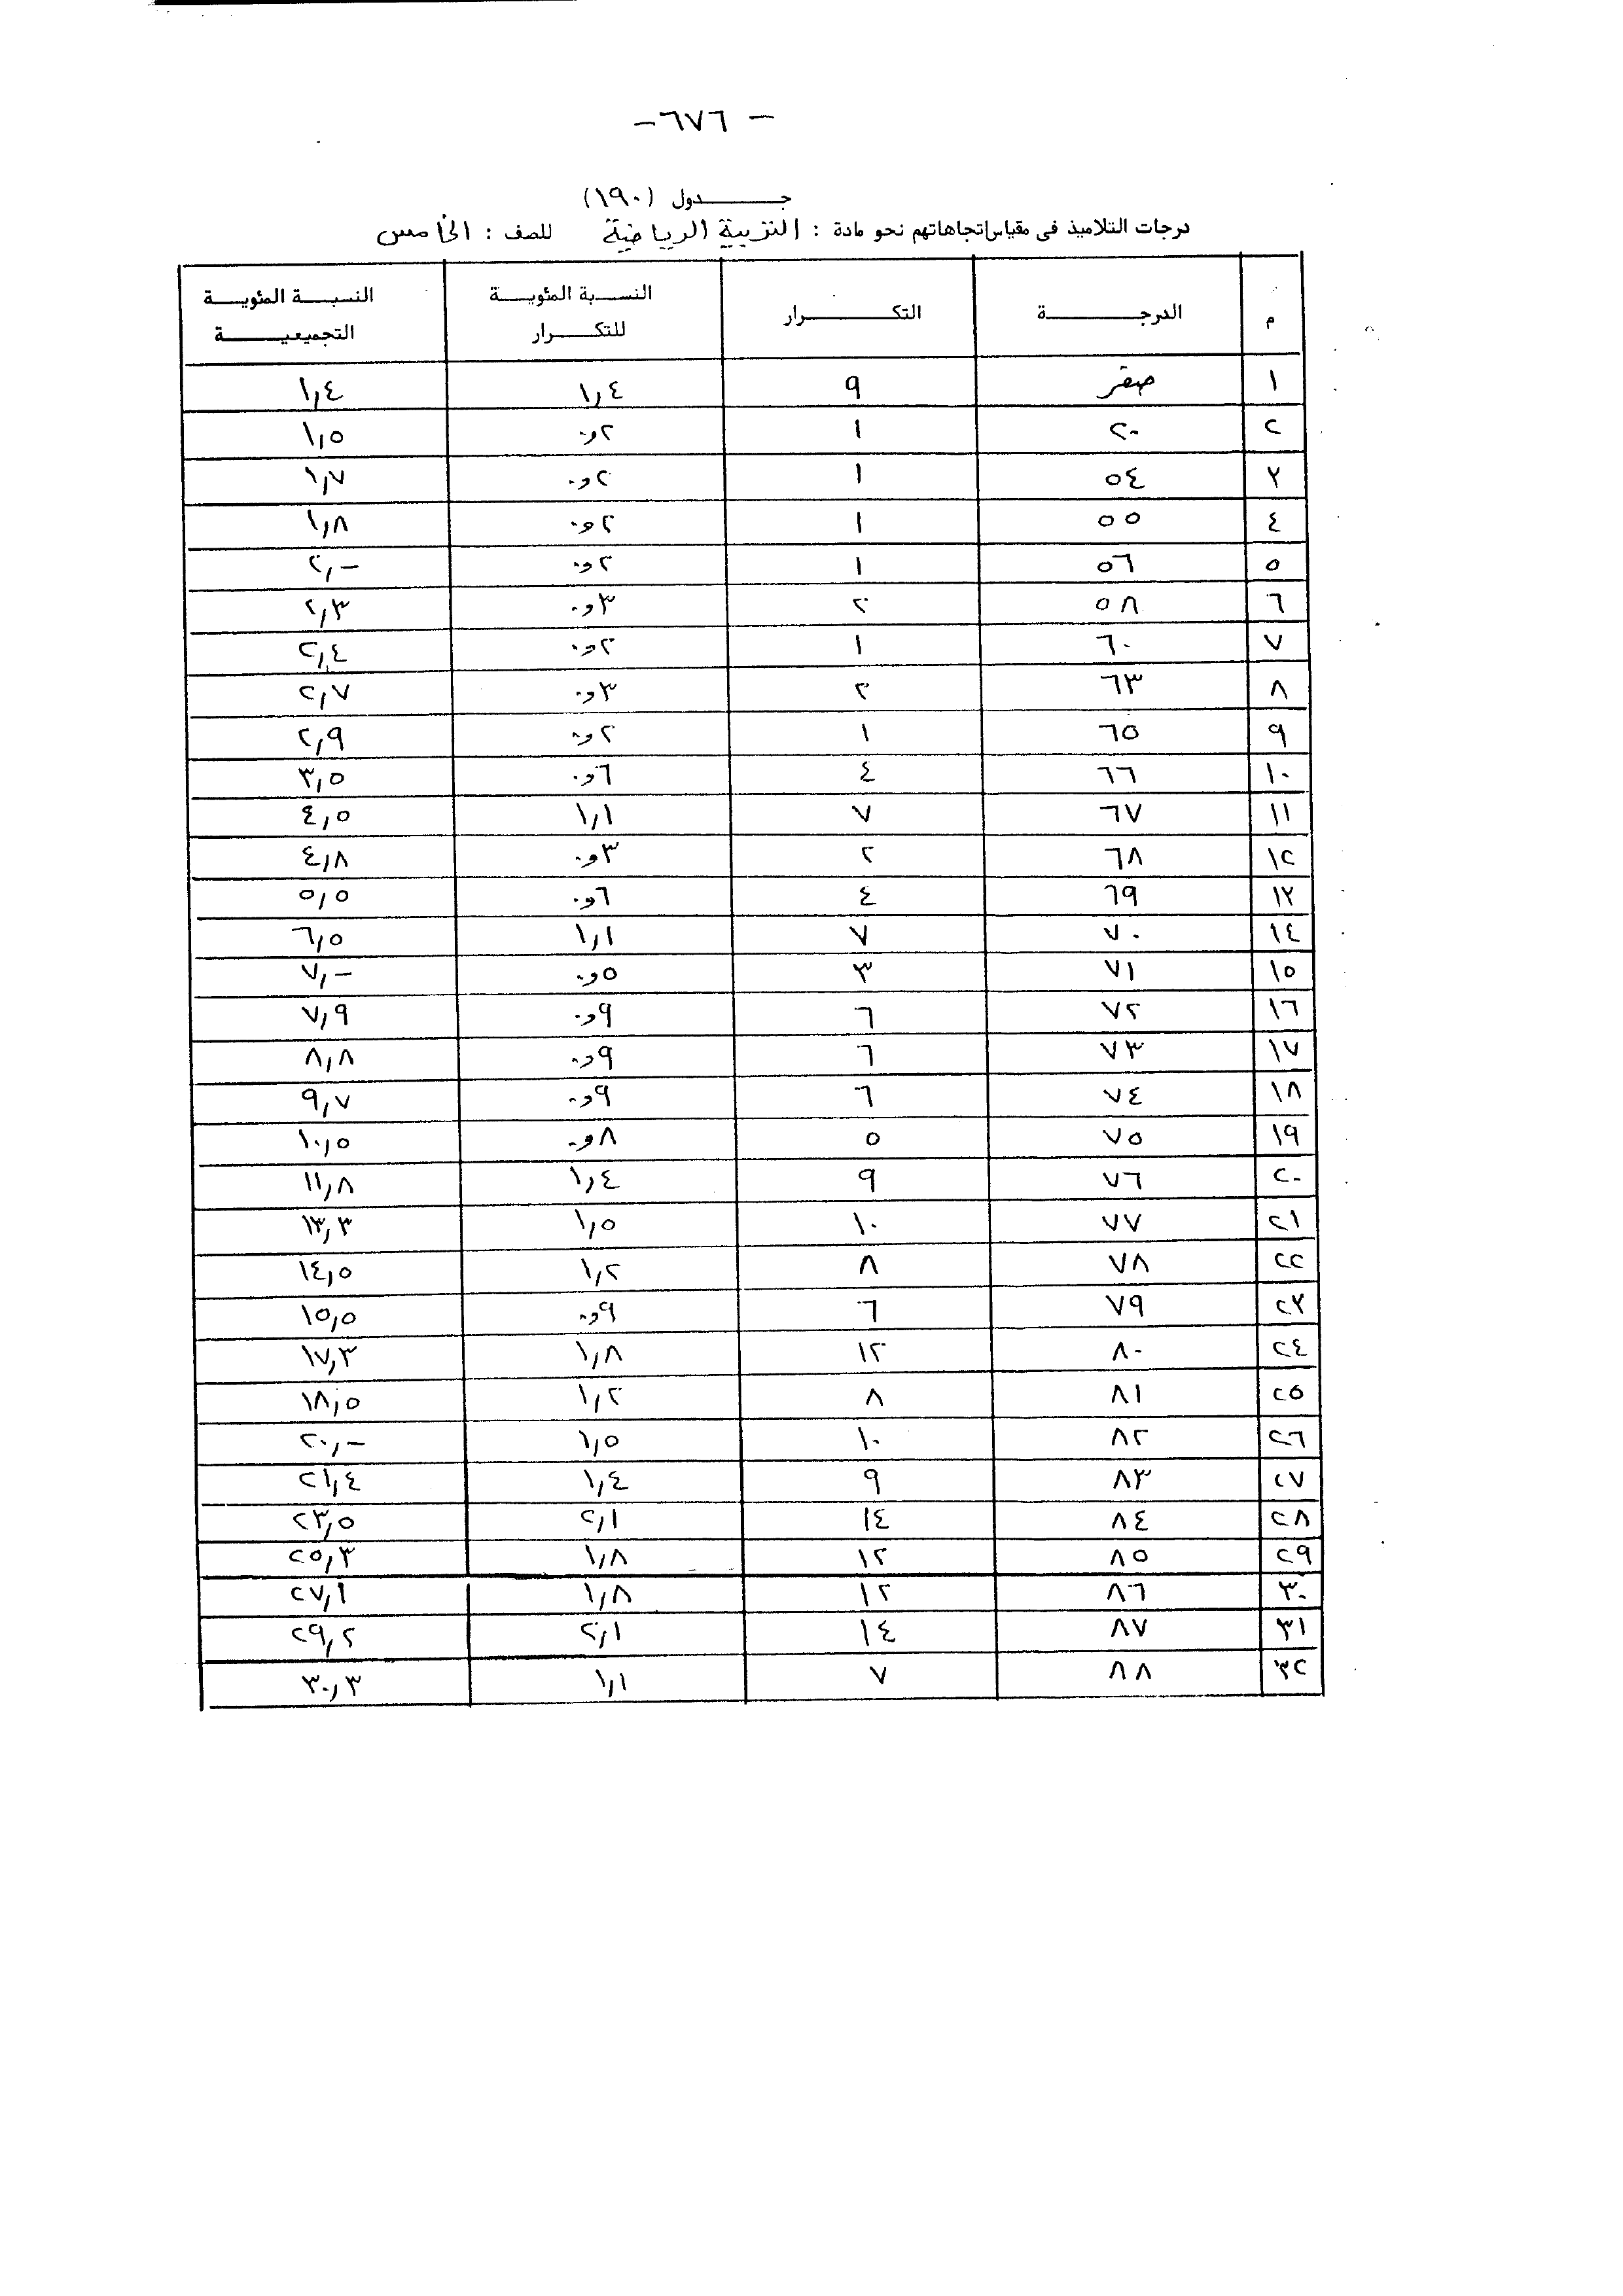 - ٦٧٦ -
جـــدول (١٩٠)
درجات التلاميذ فى مقياس اتجاهاتهم نحو مادة : التربية الرياضية للصف : الخامس
م الدرجـــة التكـــرار النسـبة المئويـة للتكـــرار النسبـة المئويـة التجميعيـــة
١ صفر ٩ ١,٤ ١,٤
٢ ٢٠ ١ ٢و٠ ١,٥
٣ ٥٤ ١ ٢و٠ ١,٧
٤ ٥٥ ١ ٢و٠ ١,٨
٥ ٥٦ ١ ٢و٠ ٢,-
٦ ٥٨ ٢ ٣و٠ ٢,٣
٧ ٦٠ ١ ٢و٠ ٢,٤
٨ ٦٣ ٢ ٣و٠ ٢,٧
٩ ٦٥ ١ ٢و٠ ٢,٩
١٠ ٦٦ ٤ ٦و٠ ٣,٥
١١ ٦٧ ٧ ١,١ ٤,٥
١٢ ٦٨ ٢ ٣و٠ ٤,٨
١٣ ٦٩ ٤ ٦و٠ ٥,٥
١٤ ٧٠ ٧ ١,١ ٦,٥
١٥ ٧١ ٣ ٥و٠ ٧,-
١٦ ٧٢ ٦ ٩و٠ ٧,٩
١٧ ٧٣ ٦ ٩و٠ ٨,٨
١٨ ٧٤ ٦ ٩و٠ ٩,٧
١٩ ٧٥ ٥ ٨و٠ ١٠,٥
٢٠ ٧٦ ٩ ١,٤ ١١,٨
٢١ ٧٧ ١٠ ١,٥ ١٣,٣
٢٢ ٧٨ ٨ ١,٢ ١٤,٥
٢٣ ٧٩ ٦ ٩و٠ ١٥,٥
٢٤ ٨٠ ١٢ ١,٨ ١٧,٣
٢٥ ٨١ ٨ ١,٢ ١٨,٥
٢٦ ٨٢ ١٠ ١,٥ ٢٠,-
٢٧ ٨٣ ٩ ١,٤ ٢١,٤
٢٨ ٨٤ ١٤ ٢,١ ٢٣,٥
٢٩ ٨٥ ١٢ ١,٨ ٢٥,٣
٣٠ ٨٦ ١٢ ١,٨ ٢٧,١
٣١ ٨٧ ١٤ ٢,١ ٢٩,٢
٣٢ ٨٨ ٧ ١,١ ٣٠,٣